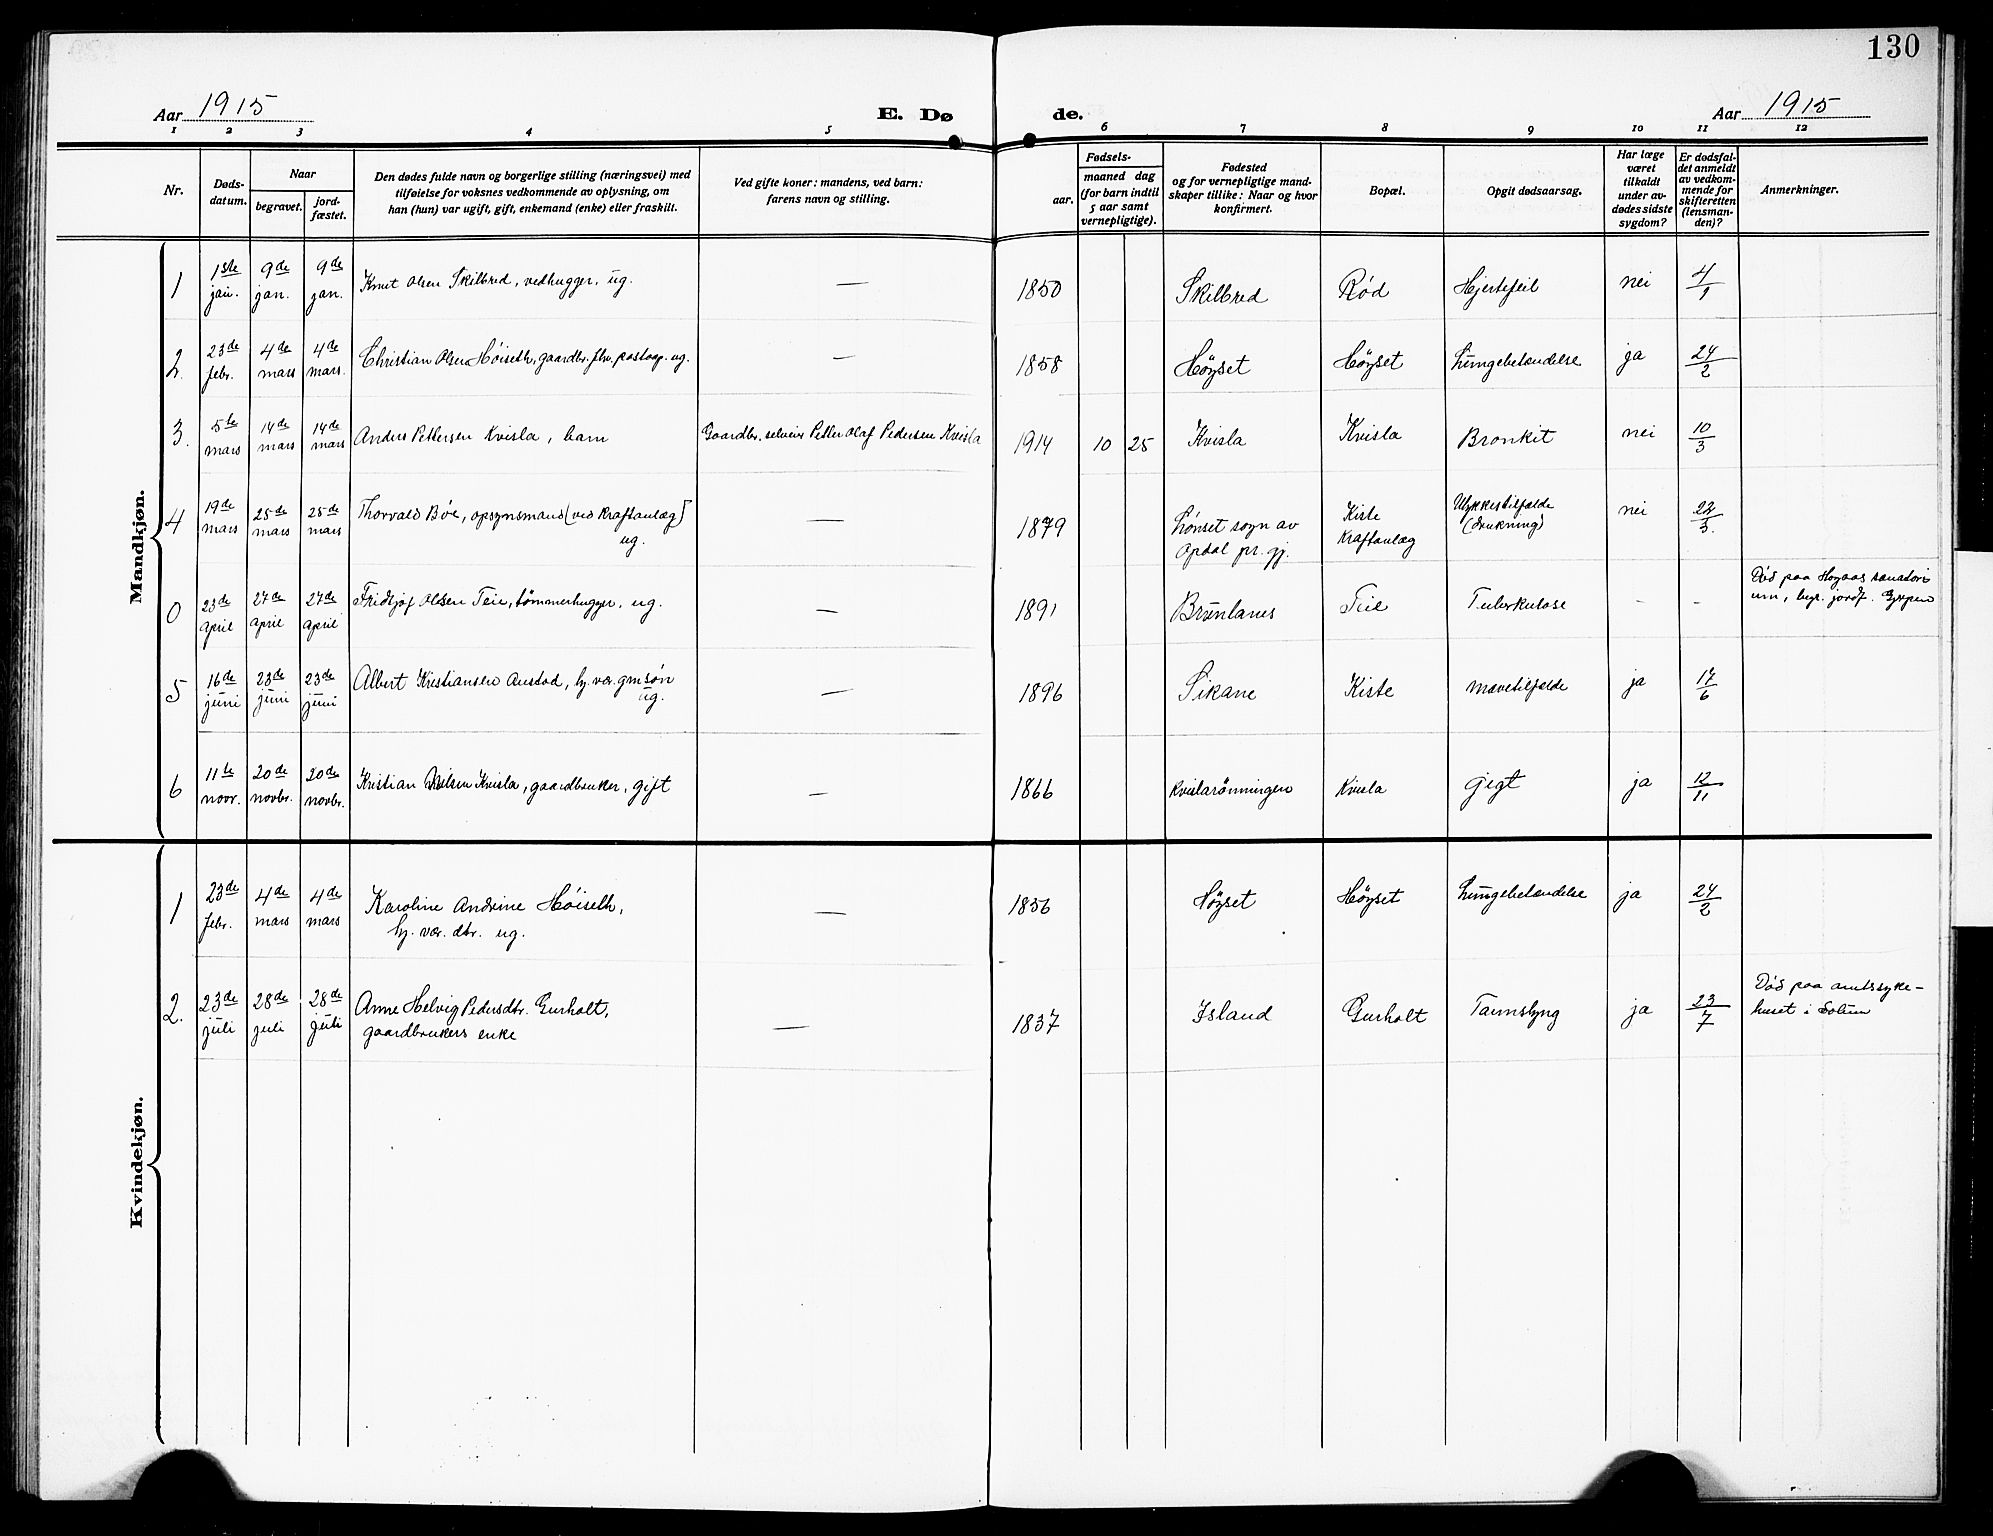 130
Aar 1915
E. Dø
de.
Aar 1915
1 2 3 4 5 6 7 8 9 10 11 12
Nr.
Døds-
datum.
Naar
begravet.
jord-
fæstet.
Den dødes fulde navn og borgerlige stilling (næringsvei) med
tilføielse for voksnes vedkommende av oplysning, om
han (hun) var ugift, gift, enkemand (enke) eller fraskilt.
Ved gifte koner: mandens, ved barn:
farens navn og stilling.
Fødsels-
aar.
maaned dag
(for barn indtil
5 aar samt
vernepligtige).
Fødested
og for vernepligtige mand-
skaper tillike: Naar og hvor
konfirmert.
Bopæl.
Opgit dødsaarsag.
Har læge
været
tilkaldt
under av-
dødes sidste
sygdom?
Er dødsfal-
det anmeldt
av vedkom-
mende for
skifteretten
(lensman-
den)?
Anmerkninger.
Mandkjøn.
1 1ste jan. 9de jan. 9de jan. Knut Olsen Skilbred, vedhugger, ug. — 1850 Skilbred Rød Hjertefeil nei 4/1
2. 23de febr. 4de mars 4de mars. Christian Olsen Høiseth, gaardbr. fhv. postaap. ug. — 1858 Høyset Høyset Lungebetændelse ja 24/2
3. 5te mars 14de mars 14de mars Anders Pettersen Kvisla, barn Gaardbr. selveier Petter Olaf Pedersen Kvisla 1914 10 25 Kvisla Kvisla Bronkit nei 10/3
4 19de mars 25de mars 25de mars Thorvald Bøe, opsynsmand [ved Kraftanlæg]
ug. — 1879 Lønset sogn av
Opdal pr. gj. Kiste
Kraftanlæg Ulykkestilfælde
(drukning) nei 22/3.
0 23de april 27de april 27de april Fridtjof Olsen Teie, tømmerhugger, ug. — 1891 Brunlanes Teie Tuberkulose - - Død paa sanatori
um, begr. jordf. Gjerpen
5 16de juni 23de juni 23de juni Albert Kristiansen Anstad, hj. vær. gm. søn
ug. — 1896 Sikane Kiste mavetilfælde ja 17/6
6 11te novr. 20de novbr. 20de novbr. Kristian Nilsen Kvisla, gaardbruker, gift — 1866 Kvislarønningen Kvisla gigt ja 12/11
Kvindekjøn.
1 23de febr. 4de mars 4de mars Karoline Andrine Høiseth,
hj. vær. dtr. ug. — 1856 Høyset Høyset Lungebetændelse ja 24/2
2. 23de juli 28de juli 28de juli Anne Helvig Pedersdtr. Gurholt,
gaardbrukers enke — 1837 Island Gurholt Tarmslyng ja 23/7 Død paa amtssyke-
huset i Solum